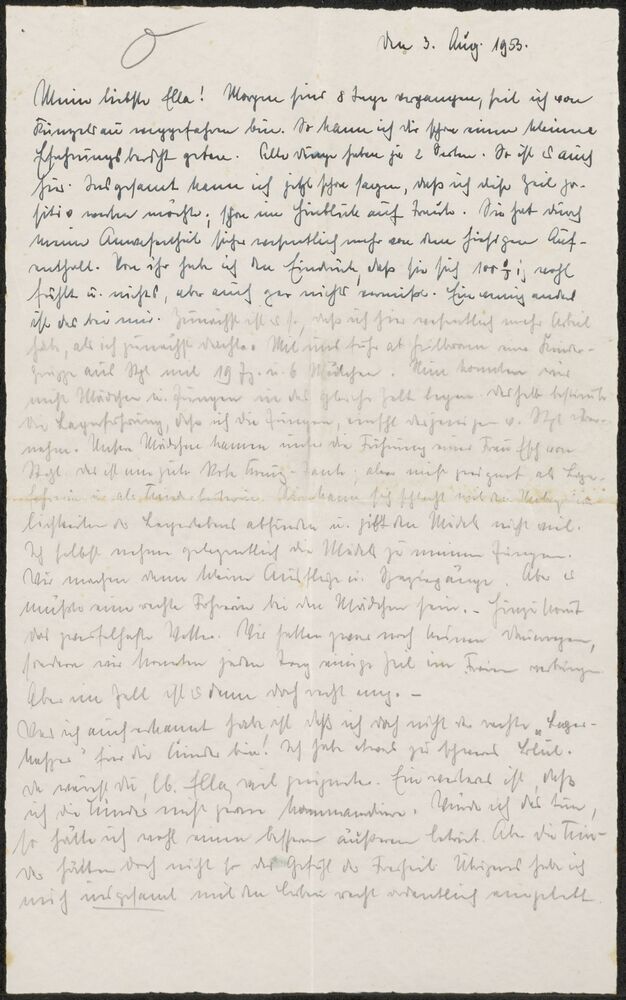 Den 3. Aug. 1953.
Meine liebste Ella! Morgen sind 8 Tage vergangen, seit ich von
Künzelsau weggefahren bin. So kann ich dir schon einen kleinen
Erfahrungsbericht geben. Alle Dinge haben ja 2 Seiten. So ist es auch
hier. Insgesamt kann ich jetzt schon sagen, daß ich diese Zeit po-
sitiv werten möchte; schon im Hinblick auf Traute. Sie hat durch
meine Anwesenheit sicher wesentlich mehr von dem hiesigen Auf-
enthalt. Von ihr habe ich den Eindruck, daß sie sich 100%ig wohl
fühlt u. nichts, aber auch gar nichts vermißt. Ein wenig anders
ist das bei mir. Zunächst ist es so, daß ich hier wesentlich mehr Arbeit
habe, als ich zunächst dachte. Mit uns fuhr ab Heilbronn eine Kinder-
gruppe aus Stgt mit 19 Jg. u. 6 Mädchen. Nun konnten wir
nicht Mädchen u. Jungen in das gleiche Zelt legen. Deshalb bestimmte
die Lagerführung, daß ich die Jungen, einschl. derjenigen v. Stgt über-
nehme. Unsere Mädchen kamen unter die Führung einer Frau Esch von
Stgt. Das ist eine gute Rote Kreuz-Tante, aber nicht geeignet als Lager-
 als kann sich schlecht mit den
lichkeiten des Lagerlebens abfinden u. gibt den Mädels nicht viel.
Ich selbst nehme gelegentlich die Mädels zu meinen Jungen.
Wir machen dann kleine Ausflüge u. Spaziergänge. Aber es
müßte eine rechte Führerin bei den Mädchen sein. – Hinzu kommt
das zweifelhafte Wetter. Wir hatten zwar noch keinen Dauerregen,
sondern wir konnten jeden Tag einige Zeit im Freien verbringen.
Aber im Zelt ist es dann doch recht eng. –
Was ich auch erkannt habe, ist daß ich doch nicht der rechte „Lager-
 für die Kinder bin! Ich habe etwas zu schweres Blut.
Da wärst du, lb. Ella, viel geeigneter. Ein weiteres ist, daß
ich die Kinder nicht gern kommandiere. Würde ich das tun,
so hätte ich wohl einen besseren äußeren Betrieb. Aber die Kin-
der hätten doch nicht so das Gefühl der Freiheit. Übrigens habe ich
mich insgesamt mit den Leiter recht ordentlich eingelebt.